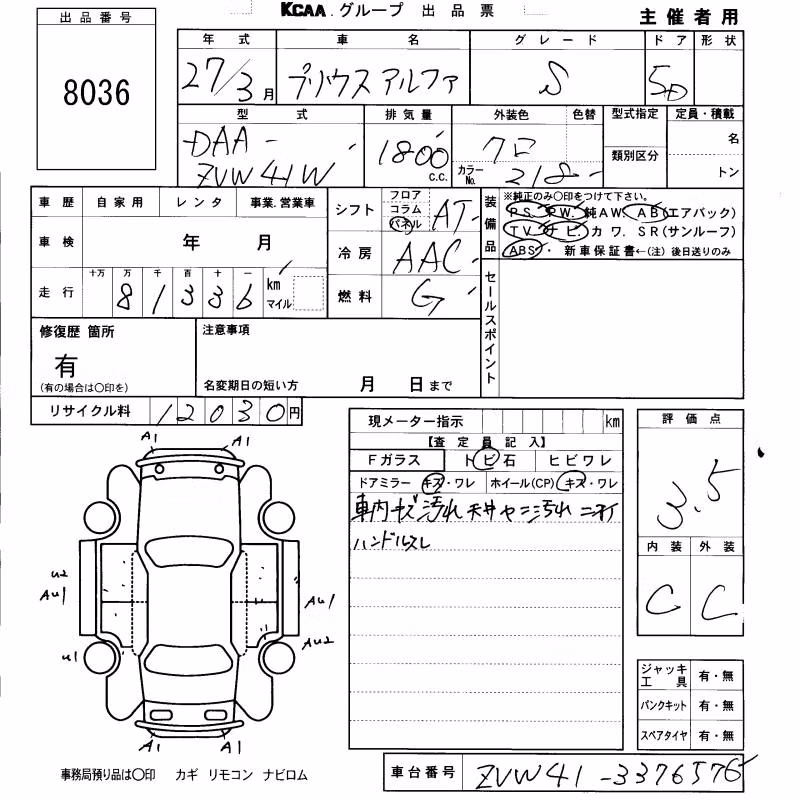 KCAA.グループ 出品票
主催者用
出品番号
8036
年式 車名 グレード ドア 形状
27/3月 プリウスアルファ S 5D
型式 排気量 外装色 色替 型式指定 定員・積載
DAA- 1800 クロ 名
ZVW41W c.c. カラーNo. 218 類別区分 トン
車歴 自家用 レンタ 事業.営業車
シフト フロア コラム パネル AT
車検 年 月
冷房 AAC
走行 十万 万 千 百 十 一 km マイル
81336
燃料 G
装備品 ※純正のみ○印をつけて下さい。
P S. P W. 純A W. A B(エアバック)
T V. ナビ. カワ. S R(サンルーフ)
ABS・ 新車保証書←(注) 後日送りのみ
セールスポイント
修復歴 箇所 注意事項
有
(有の場合は○印を) 名変期日の短い方 月 日まで
リサイクル料 12030円
現メーター指示 km
【査定員記入】
Fガラス トビ石 ヒビワレ
ドアミラー キズ・ワレ ホイール(CP) キズ・ワレ
車内キズ汚れ 天井ヤニ汚れ ニオイ
ハンドルスレ
評価点
3.5
内装 外装
C C
A1 A1
U2
AU1 AU1
U1 AU2
A1 A1
ジャッキ工具 有・無
パンクキット 有・無
スペアタイヤ 有・無
事務局預り品は○印 カギ リモコン ナビロム
車台番号 ZVW41-3376576